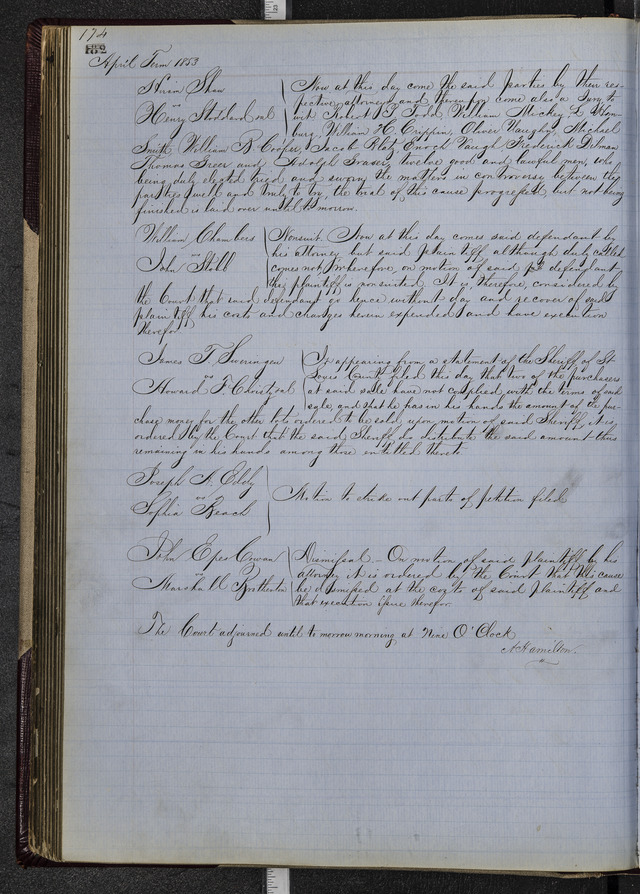 174
182
April Term 1853
Hiram Shaw
vs
Henry Stoddard et al
Now at this day come the said parties by their res-
pective attorneys and thereupon come also a Jury to
wit Robert B. Todd, William Mackey, D.
burg, William H. Crippin, Oliver Vaughn, Michael
Smith, William B. Cooper, Jacob Enoch Vaugh Frederick
Thomas Greer and Adolph twelve good and lawful men, who
being duly elected tried and sworn the matters in controversy between the
parties well and truly to try, the trial of this cause progressed but not being
finished is laid over until tomorrow.
William Chambers
vs
John Stobb
Nonsuit. Now at this day comes said defendant by
his attorney but said plaintiff although duly called
comes not, Wherefore, on motion of said defendant
the plaintiff is nonsuited. It is, therefore, considered by
the Court that said defendant go hence without day and recover of said
plaintiff his costs and charges herein expended and have execution
therefor
James T. Sweringen
vs
Howard F. Christy et al
It appearing from a statement of the Sheriff of St
Louis County filed this day that two of the purchasers
at said sale have not complied with the terms of said
sale, and that he has in his hands the amount of the pur-
chase money for the other lots ordered to be sold, upon motion of said Sheriff, it is
ordered by the Court that the said Sheriff do distribute the said amount thus
remaining in his hands among those entitled thereto
Joseph A. Eddy
vs
Sophia Beach
Motion to strike out parts of petition filed
John Epes Cowan
vs
Marshall Brotherton
Dismissal. On motion of said plaintiff by his
attorney it is ordered by the Court that this cause
be dismissed at the costs of said plaintiff and
that execution issue therefor.
The Court adjourned until to morrow morning at Nine O'Clock
A Hamilton.